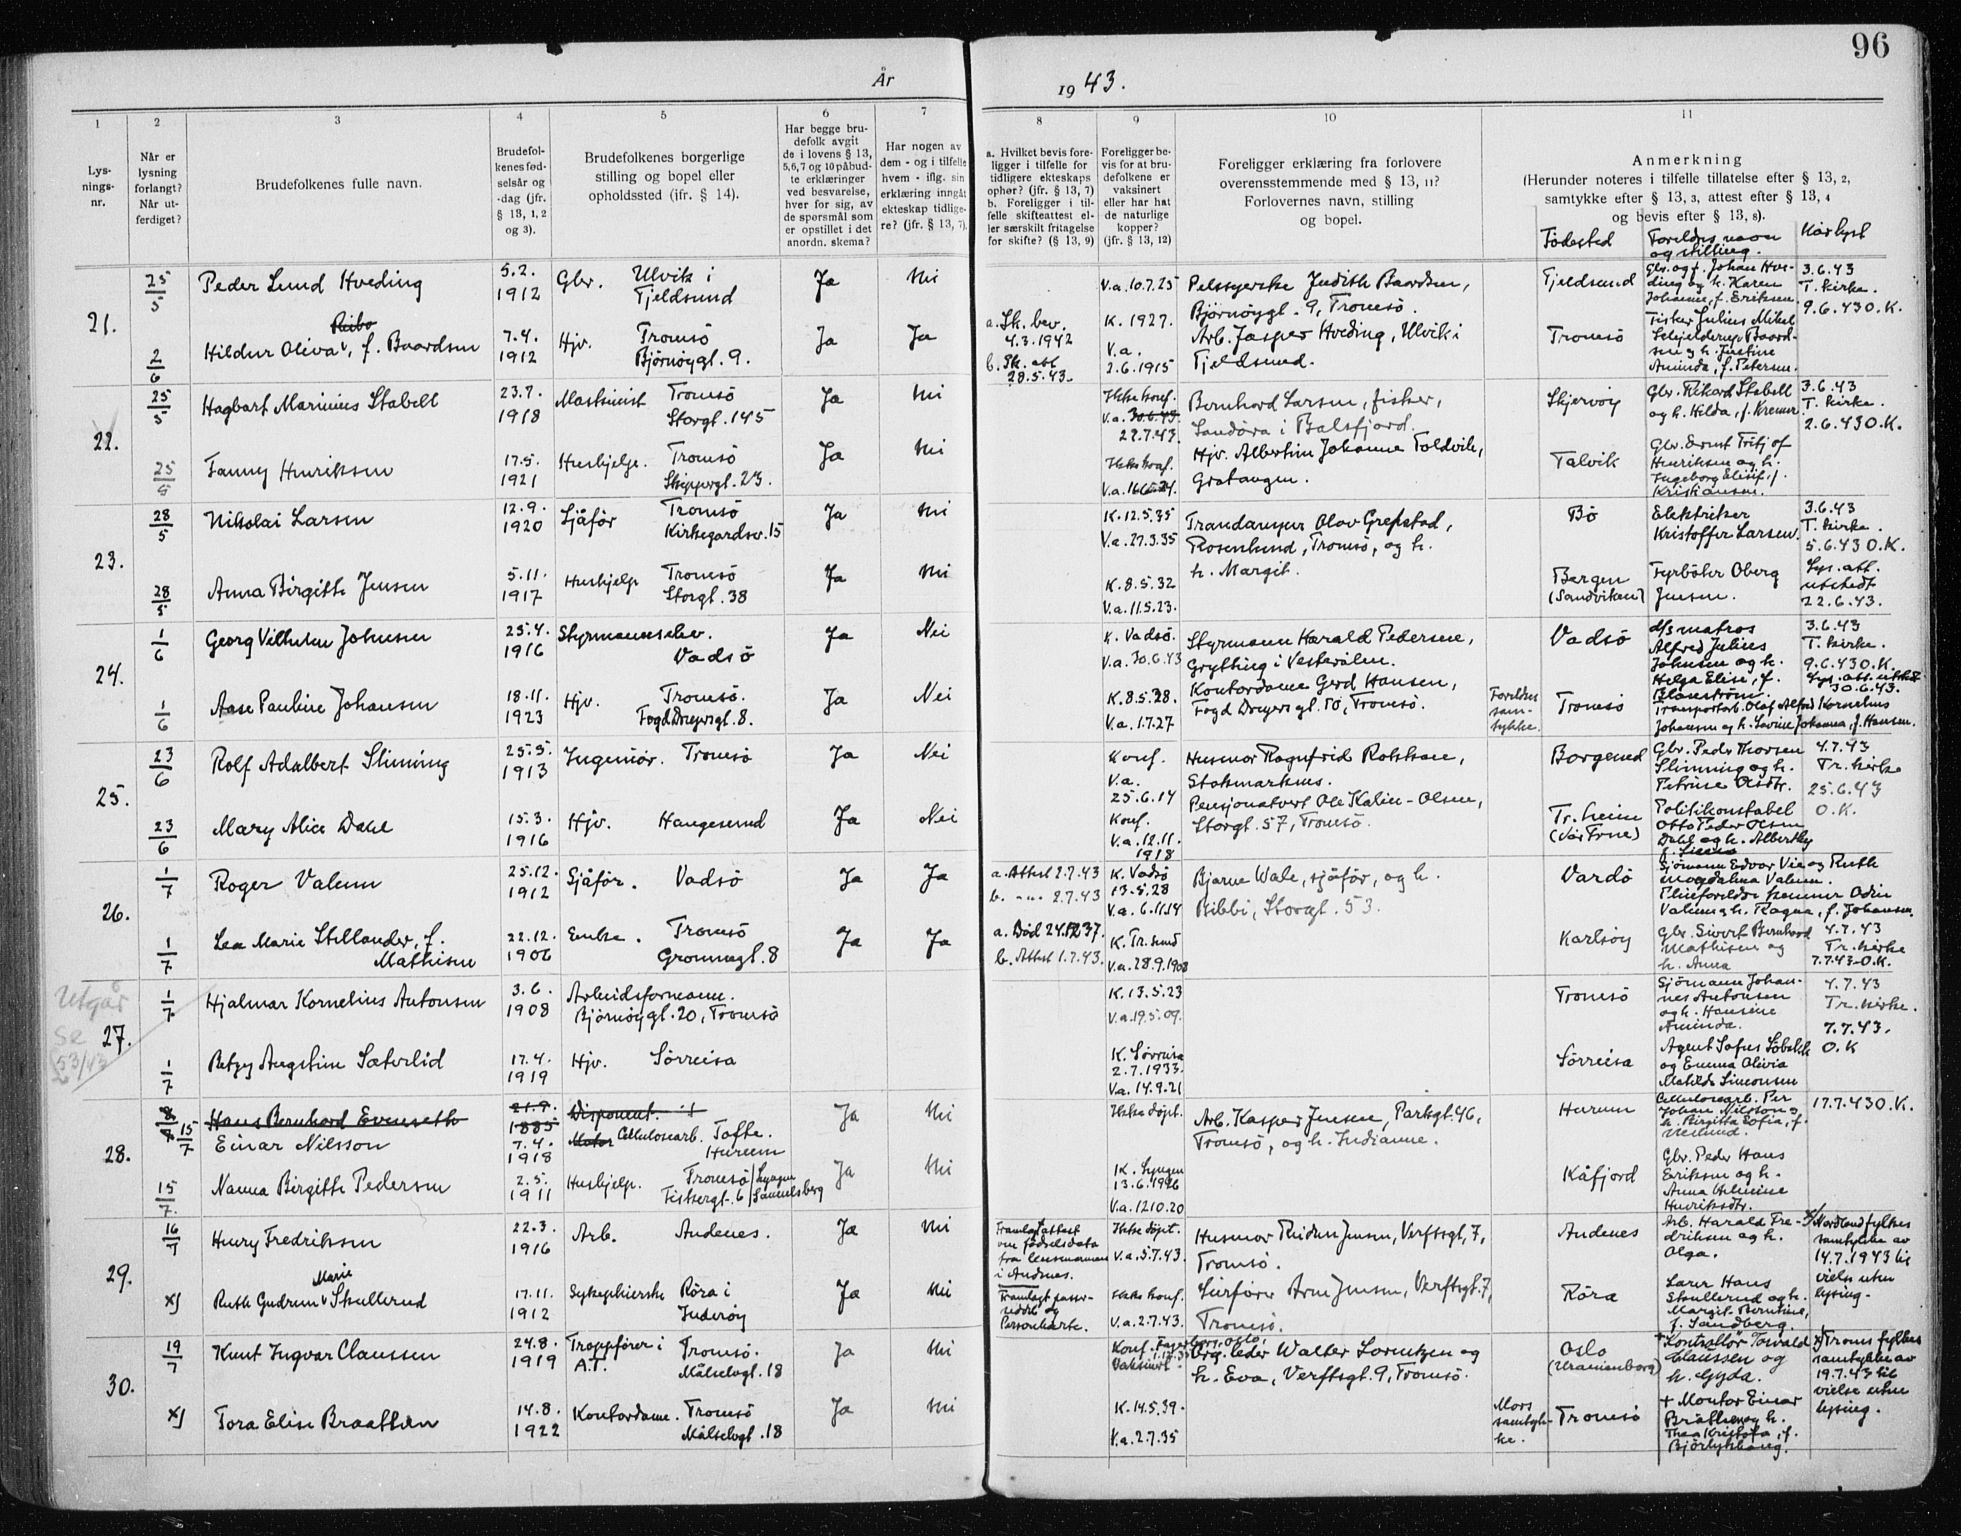 96
År 1943.
1 2 3 4 5 6 7 8 9 10 11
Lys-
nings-
nr.
Når er
lysning
forlangt?
Når ut-
ferdiget?
Brudefolkenes fulle navn.
Brudefol-
kenes fød-
selsår og
-dag (jfr.
§ 13, 1, 2
og 3).
Brudefolkenes borgerlige
stilling og bopel eller
opholdssted (jfr. § 14).
Har begge bru-
defolk avgit
de i lovens § 13,
5,6,7 og 10 påbud-
te erklæringer
ved besvarelse,
hver for sig, av
de spørsmål som
er opstillet i det
anordn. skema?
Har nogen av
dem - og i tilfelle
hvem - iflg. sin
erklæring inngått
ekteskap tidlige-
re? (jfr. § 13, 7).
a. Hvilket bevis fore-
ligger i tilfelle for
tidligere ekteskaps
ophør? (jfr. § 13, 7)
b. Foreligger i til-
felle skifteattest el-
ler særskilt fritagelse
for skifte? (§ 13, 9)
Foreligger be-
vis for at bru-
defolkene er
vaksinert
eller har hat
de naturlige
kopper?
(jfr. § 13, 12)
Foreligger erklæring fra forlovere
overensstemmende med § 13, 11?
Forlovernes navn, stilling
og bopel.
Anmerkning
(Herunder noteres i tilfelle tillatelse efter § 13, 2,
samtykke efter § 13, 3, attest efter § 13, 4
og bevis efter § 13, 8).
Fødested
Foreldres navn
og stilling.
Når lyst
21.
25/5 Peder Lund Hveding
5.2.
1912
Gbr. Ulvik i
Tjeldsund
Ja Nei
V.a. 10.7.25
Pelssyerske Judith Baardsen,
Bjørnøygt. 9, Tromsö.
Tjeldsund
Gbr. og f. Johan Hve-
ding og h. Karen
Johanne, f. Eriksen
3.6.43
T. kirke.
9.6.43 O.K.
2/6 Hildur Oliva, f. Baardsen
7.4.
1912
Hjv. Tromsö
Bjørnøygt. 9.
Ja Ja
a. Sk. bev.
4.3.1942
b. Sk. att
28.5.43.
K. 1927.
V.a.
2.6.1915
Arb. Jasper Hveding, Ulvik i
Tjeldsund.
Tromsö
Fisker Julius Mikal
Schjelderup Baard-
sen og h. Justine
Aminda, f. Petersen.
22.
25/5 Hagbart Marinius Stabell
23.7.
1918
Maskinist Tromsö
Storgt. 145
Ja Nei
Ikke konf.
V.a. 30.6.43
22.7.43.
Bernhard Larsen, fisker,
Sandøra i Balsfjord.
Skjervöy
Gbr. Rikard Stabell
og h. Hilda, f. Kremer.
3.6.43
T. kirke.
2.6.43 O.K.
25/5 Fanny Henriksen
17.5.
1921
Hushjelp. Tromsö
Skippergt. 23.
Ja Nei
Ikke konf.
Hjv. Albertine Johanne Toldvik,
Gratangen.
Talvik
Gbr. Ernst Fritjof
Henriksen og h.
Ingeborg Elisif, f.
Kristiansen.
23.
28/5 Nikolai Larsen
12.9.
1920
Sjåför Tromsö
Kirkegardsv. 15
Ja Nei
K. 12.5.35
V.a. 27.3.35
Trandamper Olav Grepstad,
Rosenlund, Tromsö, og h.
h. Margit.
Bö
Elektriker
Kristoffer Larsen.
3.6.43
T. kirke.
5.6.43 O.K.
28/5 Anna Birgitte Jensen
5.11.
1917
Hushjelp Tromsö
Storgt. 38
Ja Nei
K. 8.5.32
V.a. 11.5.23.
Bergen
(Sandviken)
Fyrböter Oberg
Jensen.
Lys. att.
utstedt
22.6.43.
24.
1/6 Georg Vilhelm Johnsen
25.4.
1916
Styrmannselev.
Vadsö
Ja Nei
K. Vadsö.
V.a. 30.6.43
Styrmann Harald Pedersen,
Grytting i Vesterålen.
Vadsö
d/s matros
Alfred Julius
Johnsen og h.
Helga Elise, f.
Blomström.
3.6.43
T. kirke.
9.6.43 O.K.
Lys. att. utstedt
30.6.43.
1/6 Aase Pauline Johansen
18.11.
1923
Hjv. Tromsö.
Fogd Dreyersgt. 8.
Ja Nei
K. 8.5.28.
V.a. 1.7.27
Kontordame Gerd Hansen,
Fogd Dreyersgt. 10, Tromsö.
Foreldres
sam-
tykke.
Tromsö
Transportarb. Olaf Alfred Kornelius
Johansen og h. Lovise Johanna, f. Hansen.
25.
23/6 Rolf Adalbert Slinning
25.5.
1913
Ingeniör. Tromsö
Ja Nei
Konf.
V.a.
25.6.14
Husmor Ragnfrid Rokkan,
Stokmarknes.
Borgund
Gbr. Peder Thorsen
Slinning og h.
Petrine Olsdtr.
4.7.43
Tr. kirke
25.6.43
O.K.
23/6 Mary Alice Dahl
15.3.
1916
Hjv. Haugesund
Ja Nei
Konf.
V.a. 12.11.
1918
Pensjonatvert Ole Kalin-Olsen,
Storgt. 57, Tromsö.
Tr.heim
(Vår Frue)
Politikonstabel
Otto Peder Olsen
Dahl og h.
26.
1/7 Roger Valenn
25.12.
1912
Sjåför. Vadsö
Ja Ja
a. Attest 2.7.43
b. -"- 2.7.43
K. Vadsö
13.5.28
V.a. 6.11.14
Bjarne Wale, sjåför, og h.
Bibbi, Storgt. 53.
Vardö
1/7 Lea Marie Stillander, f.
Mathisen
22.12.
1906
Enke. Tromsö
Grönnegt. 8
Ja Ja
b. Attest 1.7.43.
K. Tr.sund
V.a. 28.9.1908
Karlsöy
Gbr. Sivert Bernhard
Mathisen og
h. Anna
4.7.43
Tr. kirke
7.7.43. O.K.
Utgår
se
53/43
27.
1/7 Hjalmar Kornelius Antonsen
3.6.
1908
Arbeidsformann.
Björnöygt. 20, Tromsö
K. 13.5.23
V.a. 19.5.09.
Tromsö
Sjömann Johan-
nes Antonsen
og h. Hansine
Aminda.
4.7.43
Tr. kirke.
7.7.43.
O.K
1/7 Betzy Augstine Sæterlid
17.4.
1919
Hjv. Sörreisa
K. Sörreisa
2.7.1933.
V.a. 14.9.21
Sörreisa
og Emma Olivia
Matilde Simonsen
28.
15/7 Hans Bernhard Evenseth
Einar Nilsson
21.9.
1885
7.4.
1918
Disponent.
Cellulosearb. Tofte.
Hurum
Ja Nei
Ikke döpt.
Arb. Kasper Jensen, Parkgt. 46,
Tromsö, og h. Indianne.
Hurum
Cellulosearb. Per
Johan Nilsson og
h. Birgitta Sofia, f.
17.7.43 O.K.
15/7. Nanna Birgitte Pedersen
2.5.
1911
Hushjelp. Tromsö / Lyngen
Fiskergt. 6 / Samuelsberg
Ja Nei
K. Lyngen
13.6.1926
V.a. 12.10.20
Kåfjord
Gbr. Peder Hans
Eriksen og h.
Anna Helmine
Henriksdtr.
29.
16/7 Henry Fredriksen
22.3.
1916
Arb. Andenes.
Ja Nei
Framlagt attest
om fødselsdata
fra lensmannen
i Andenes.
Ikke döpt.
V.a. 5.7.43.
Husmor Reidun Jensen, Verftsgt. 7,
Tromsö.
Andenes
Arb. Harald Fre-
driksen og h.
Olga.
x/ Nordland fylkes
samtykke av
14.7.1943 til
vielse uten
lysing.
x) Ruth Gudrun Marie Skullerud
17.11.
1912
Sykepleierske Röra i
Inderöy
Ja Nei
Framlagt passer-
seddel og
Personkarte.
Ikke konf.
V.a. 2.7.43.
Sjåför Arne Jensen, Verftsgt. 7,
Tromsö.
Röra
Lærer Hans
Skullerud og h.
Margit Berntine,
f. Sandberg.
30.
19/7 Knut Ingvar Claussen
24.8.
1919
Troppförer i
A.T.
Tromsö.
Målselvgt. 18
Ja Nei
Konf. Fagerborg, Oslo,
Vaksinert
Org. leder Walter Lorentzen og
h. Eva, Verftsgt. 9, Tromsö.
Oslo
(Uranienborg)
Kontrollör Torvald
Claussen og
h. Gyda.
x) Troms fylkes
samtykke av
19.7.43 til
vielse uten
lysing.
x) Tora Elise Braathen
14.8.
1922
Kontordame. Tromsö
Målselvgt. 18
Ja Nei
K. 14.5.39.
V.a. 2.7.35
Mors
samtyk-
ke.
Tromsö
+ Montör Einar
Bråthen og h.
Thea Kristofa, f.